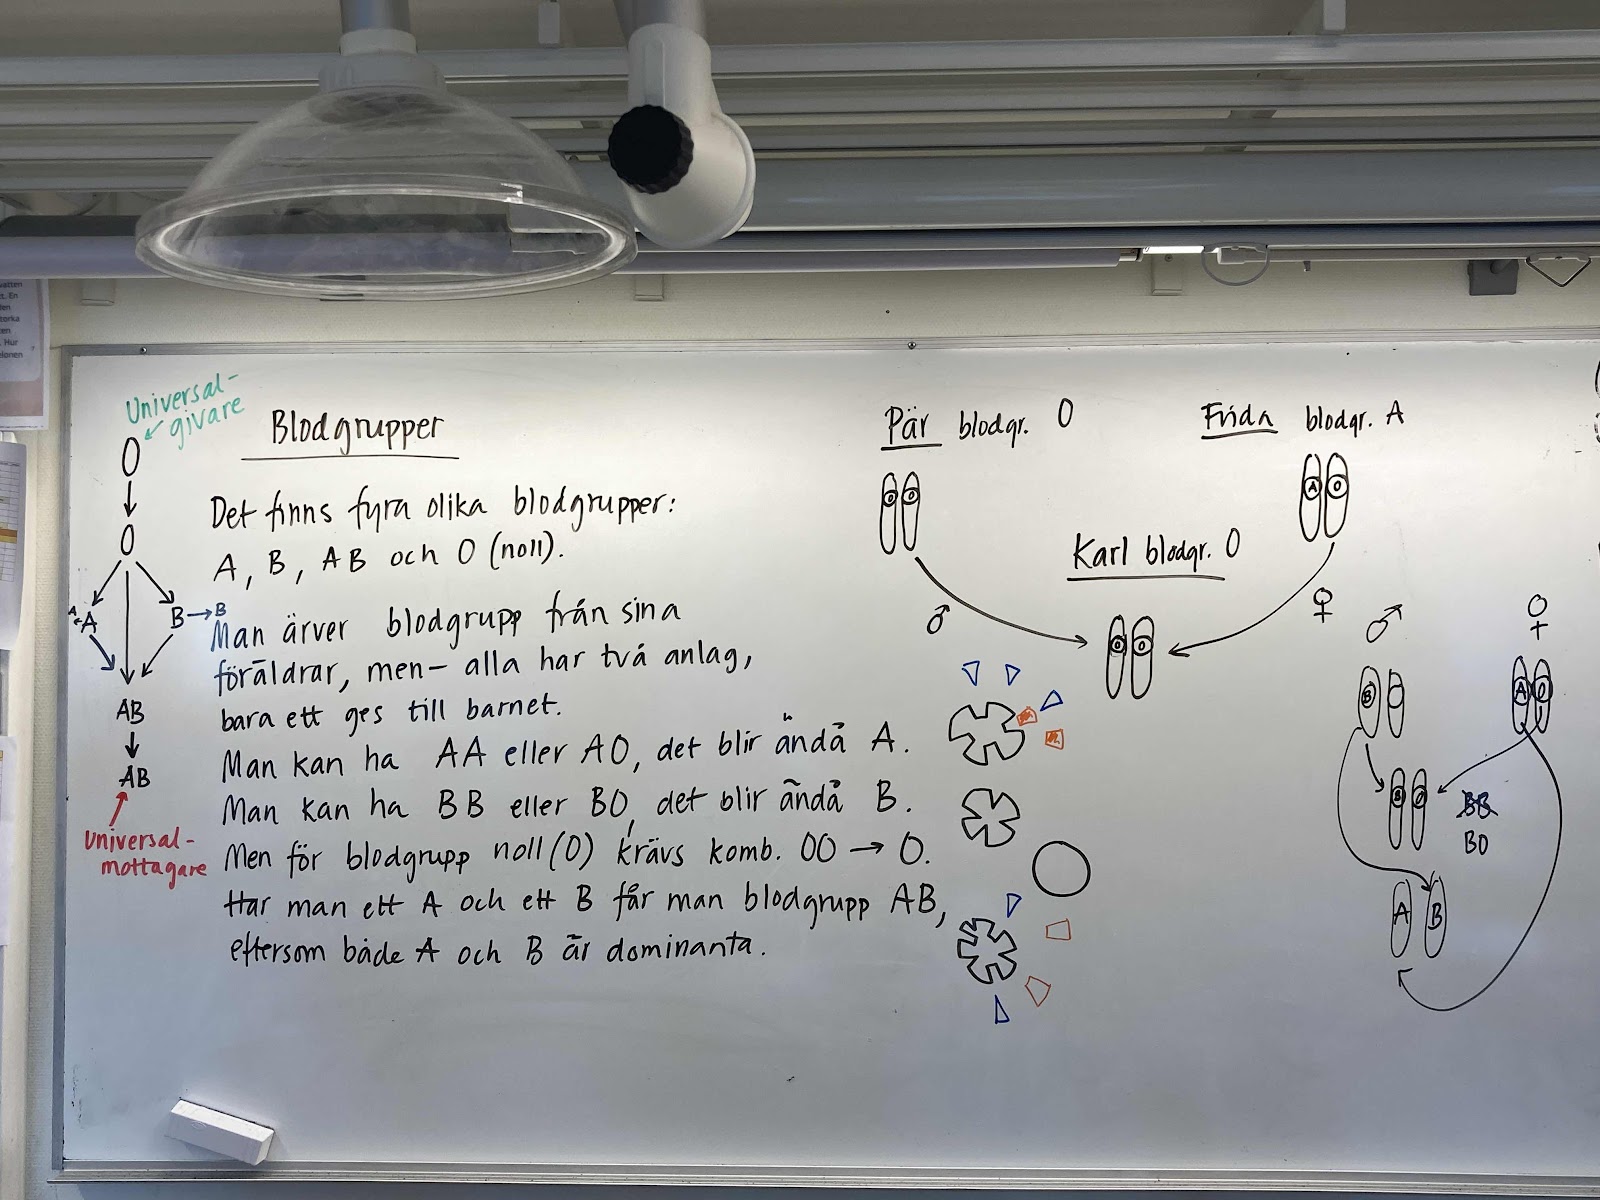 vatten
t. En
den
torka
ten
. Hur
elonen
Universal-
givare
O
O
A A
B B
AB
AB
Universal-
mottagare
Blodgrupper
Det finns fyra olika blodgrupper:
A, B, AB och O (noll).
Man ärver blodgrupp från sina
föräldrar, men – alla har två anlag,
bara ett ges till barnet.
Man kan ha AA eller AO, det blir ändå A.
Man kan ha BB eller BO, det blir ändå B.
Men för blodgrupp noll (O) krävs komb. OO → O.
Har man ett A och ett B får man blodgrupp AB,
eftersom både A och B är dominanta.
Pär blodgr. O
O O
Frida blodgr. A
A O
Karl blodgr. O
♂ ♀
O O
♂ ♀
B
A O
B O
BB
BO
A B